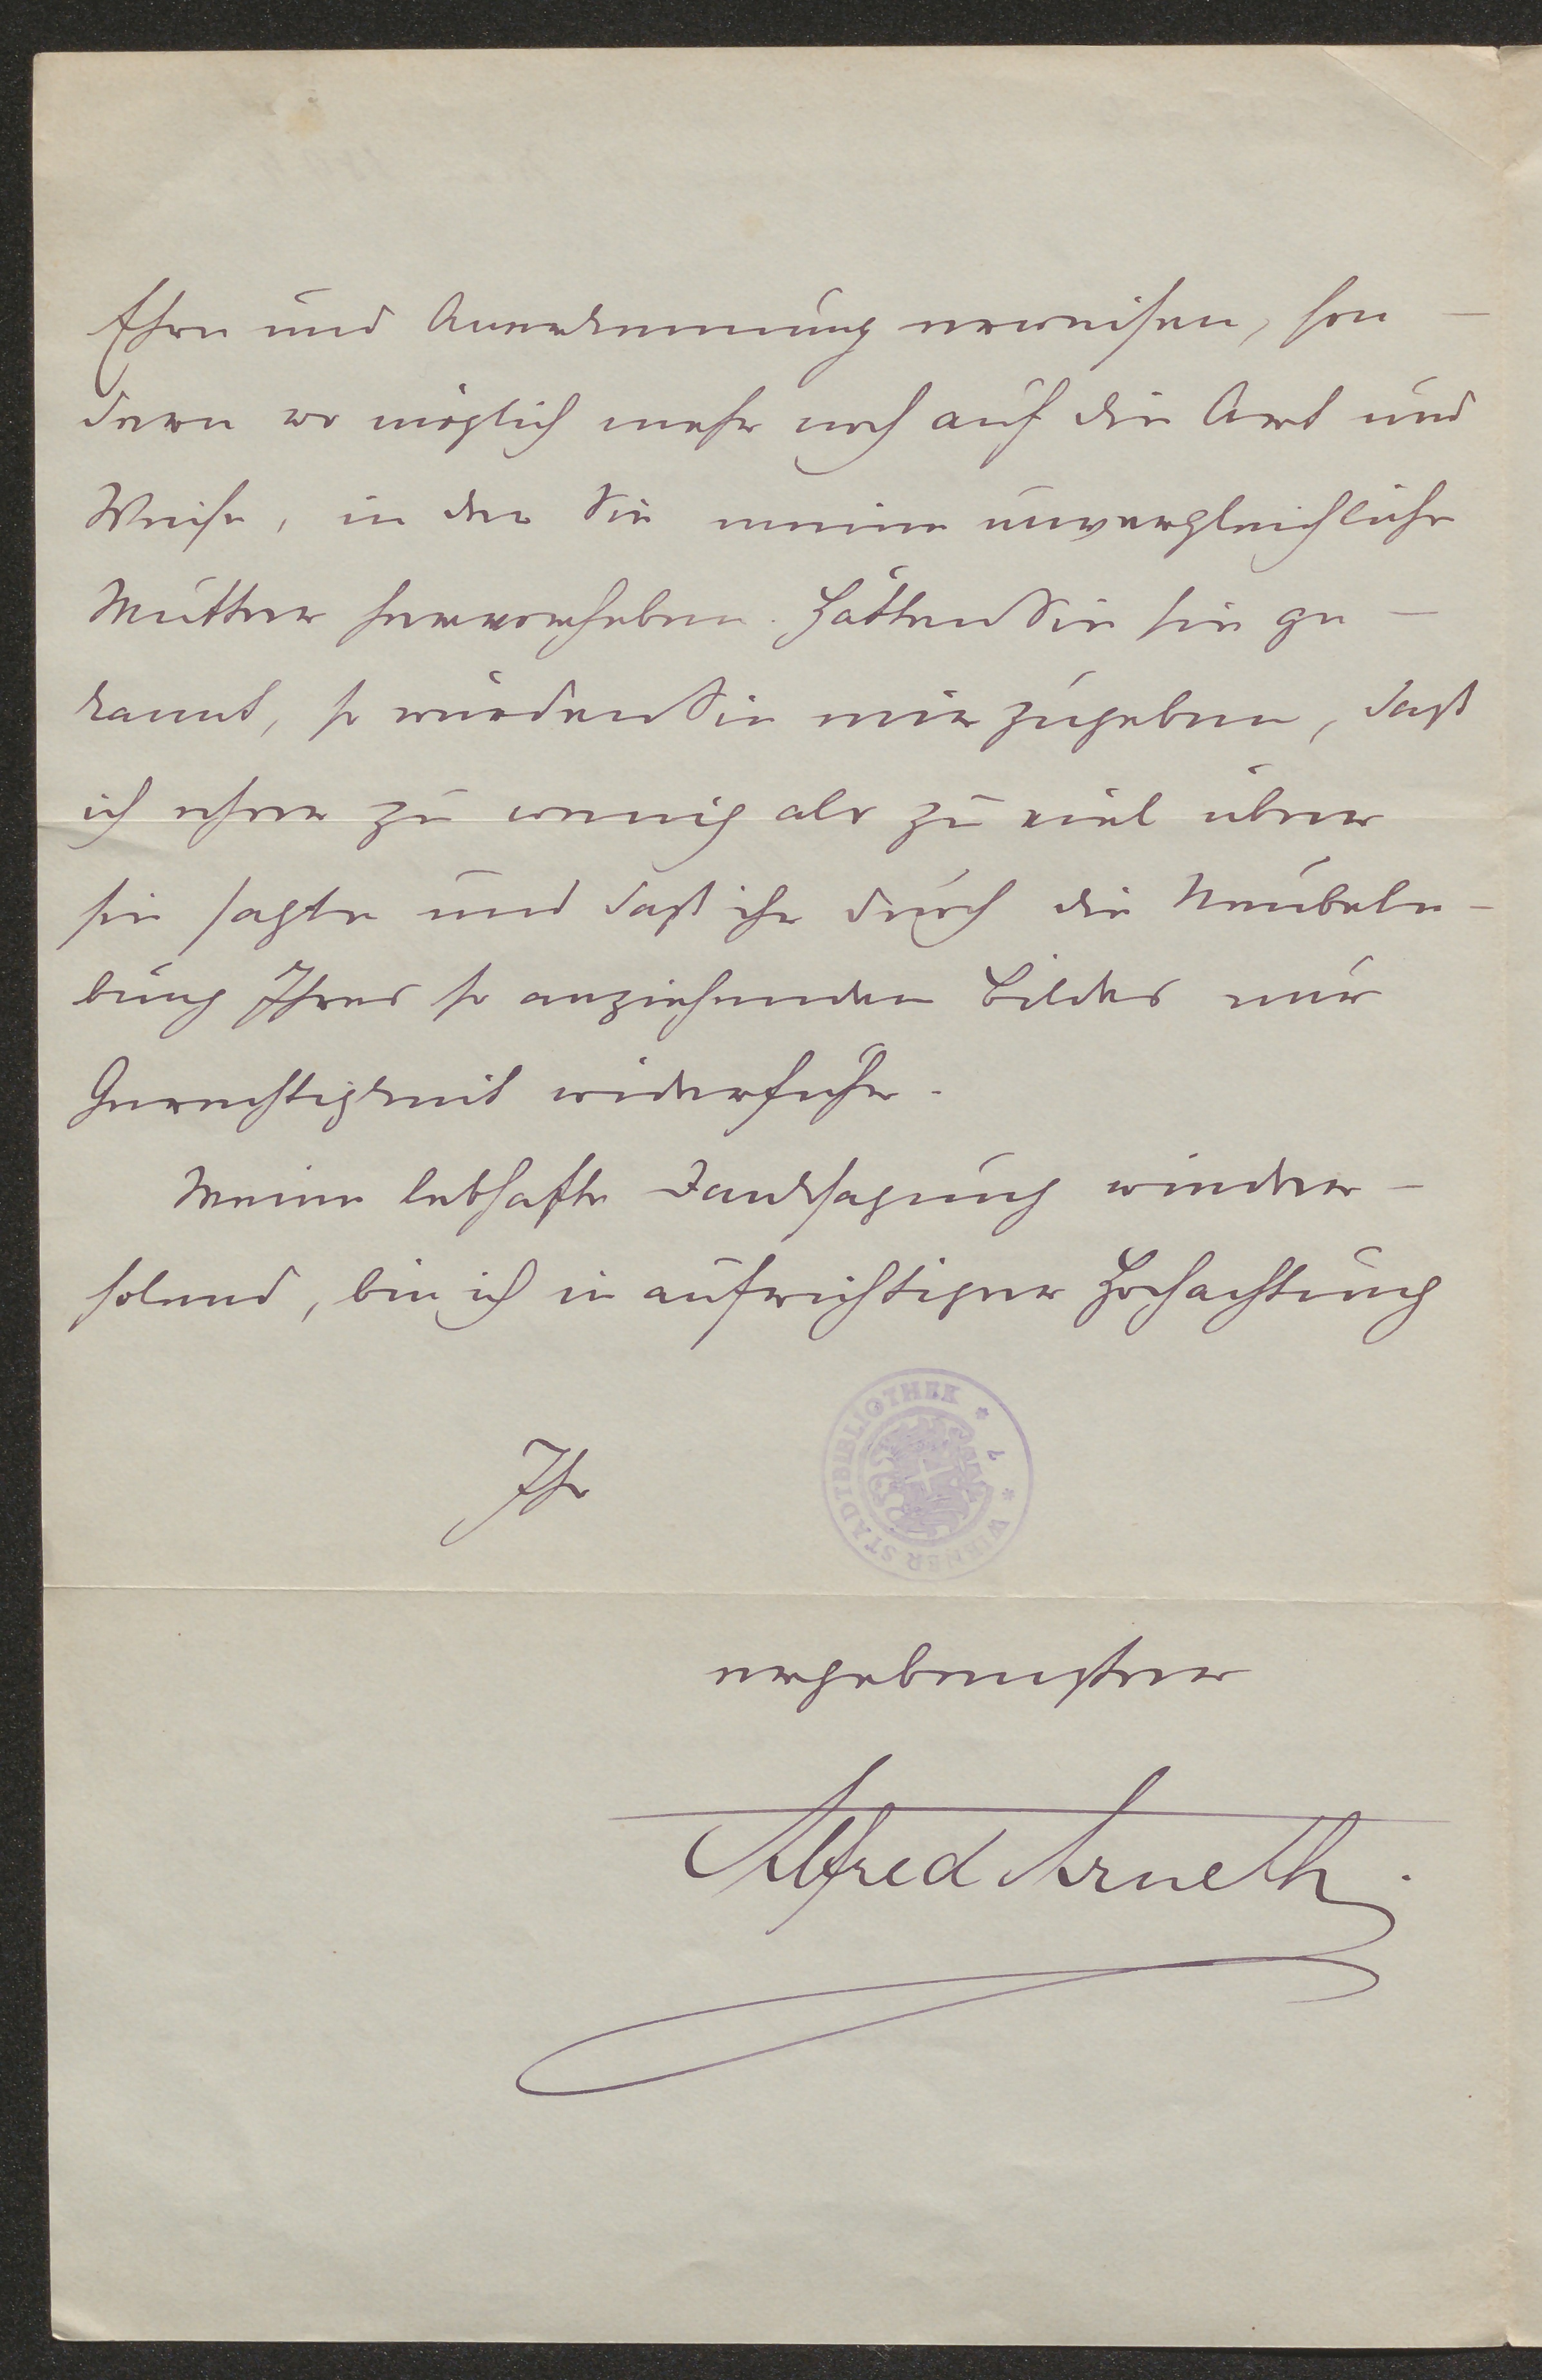 Ehre und Anerkennung erweisen, son-
dern wo möglich mehr noch auf die Art und
Weise, in der Sie meine unvergleichliche
Mutter hervorheben. Hätten Sie sie ge-
kannt, so würden Sie mir zugeben, daß
ich eher zu wenig als zu viel über
sie sagte und daß ihr durch die Neubele-
bung Ihres so anziehenden Bildes nur
Gerechtigkeit widerfuhr.
Meine lebhafte Danksagung wieder-
holend, bin ich in aufrichtiger Hochachtung
Ihr
WIENER STADTBIBLIOTHEK
ergebenster
Alfred Arneth.